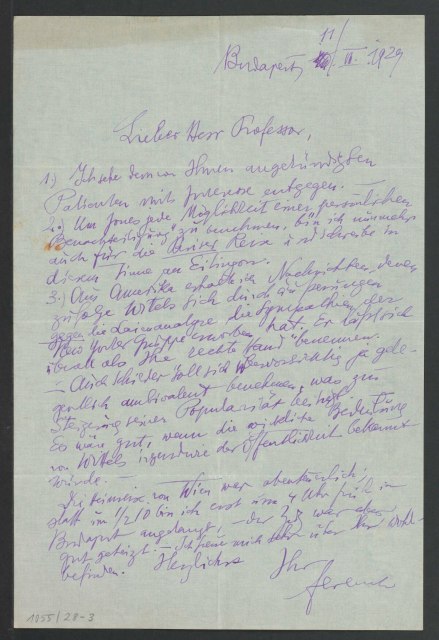 11/
Budapest, II. 1929
Lieber Herr Professor,
1.) Ich sehe dem von Ihnen angekündigten
Patienten mit Interesse entgegen. —
2.) Um Jones jede Möglichkeit einer persönlichen
"Benachteiligung" zu benehmen, bin ich nunmehr
auch für die Reise u. schreibe in
diesem Sinne an Eitingon.
3.) Aus Amerika erhalte ich Nachrichten, denen
zufolge Wittels sich durch
gegen die Laienanalyse die Sympathien der
New Yorker Gruppe erworben hat. Er lässt sich
überall als Ihre "rechte Hand" benennen.
— Auch soll sich
ambivalent benehmen, was zur
Steigerung seiner Popularität beiträgt.
Es wäre gut, wenn die wirkliche Bedeutung
von Wittels irgendwie der Öffentlichkeit bekannt
würde. —
Die Heimreise von Wien war abenteuerlich;
statt um 1/2 10 bin ich erst um 4 Uhr früh in
Budapest angelangt, — der Zug war aber
gut geheizt. — Ich freue mich sehr über Ihr Wohl-
befinden. Herzlichst
Ihr
Ferenczi
1055/28-3